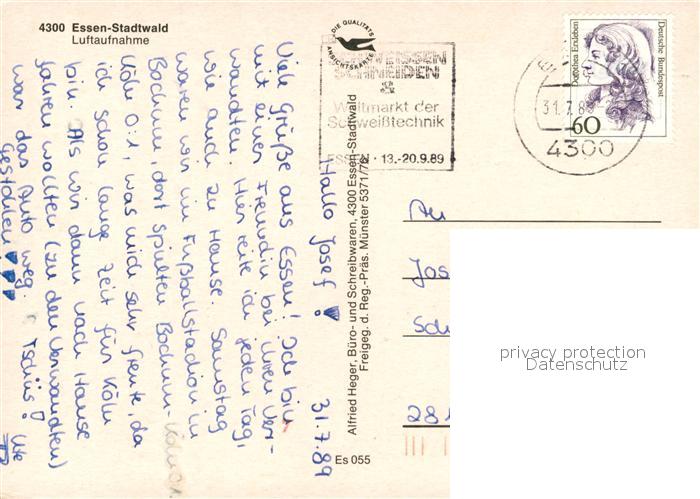 4300 Essen-Stadtwald
Luftaufnahme
DIE QUALITÄTS
ANSICHTSKARTE
SCHWEISSEN
SCHNEIDEN
&
Weltmarkt der
Schweißtechnik
ESSEN · 13.-20.9.89
31.7.89
4300
Dorothea Erxleben
Deutsche Bundespost
60
Hallo Josef! 31.7.89
Viele Grüße aus Essen! Ich bin
mit einer Freundin bei ihren Ver-
wandten. Hier reite ich jeden Tag,
wie auch zu Hause. Samstag
waren wir im Fußballstadion in
Bochum, dort spielten Bochum-
Köln 0:1, was mich sehr freute, da
ich schon lange Zeit für Köln
bin. Als wir dann nach Hause
fahren wollten (zu den Verwandten)
war das Auto weg.
Gestohlen!!! Tschüs! Ute
Alfried Heger, Büro- und Schreibwaren, 4300 Essen-Stadtwald
Freigeg. d. Reg.-Präs. Münster 5371/78
Es 055
An
Jos
Sch
28
privacy protection
Datenschutz